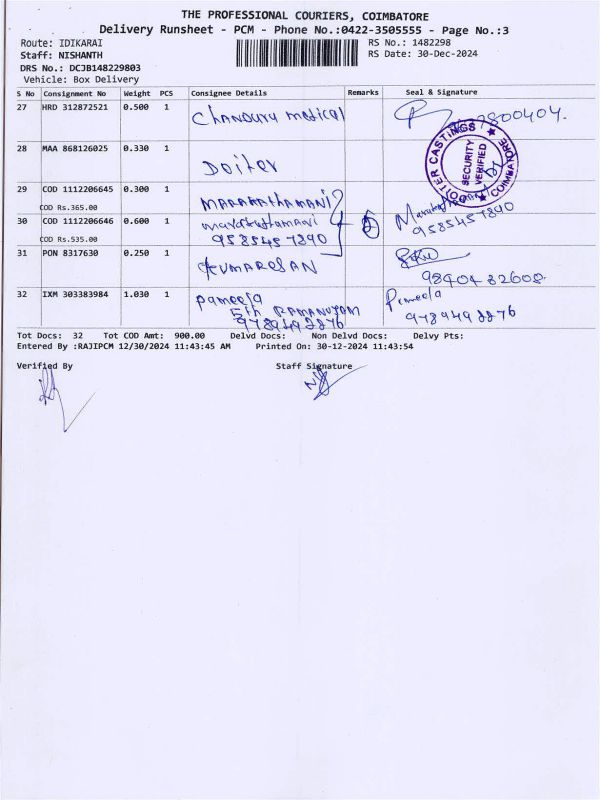 THE PROFESSIONAL COURIERS, COIMBATORE
Delivery Runsheet - PCM - Phone No.:0422-3505555 - Page No.:3
Route: IDIKARAI
RS No.: 1482298
Staff: NISHANTH
RS Date: 30-Dec-2024
DRS No.: DCJB148229803
Vehicle: Box Delivery
S No Consignment No Weight PCS Consignee Details Remarks Seal & Signature
27 HRD 312872521 0.500 1 medical 9800404.
28 MAA 868126025 0.330 1 Doiter
DOITER CASTINGS COIMBATORE
SECURITY VERIFIED
29 COD 1112206645 0.300 1 MARAKATHAMANI
COD Rs.365.00
30 COD 1112206646 0.600 1 9585457890 2 9585457890
COD Rs.535.00
31 PON 8317630 0.250 1 KUMARESAN 98404 82608
32 IXM 303383984 1.030 1 Pameela Pameela
9789498876 9789498876
Tot Docs: 32 Tot COD Amt: 900.00 Delvd Docs: Non Delvd Docs: Delvy Pts:
Entered By :RAJIPCM 12/30/2024 11:43:45 AM Printed On: 30-12-2024 11:43:54
Verified By Staff Signature